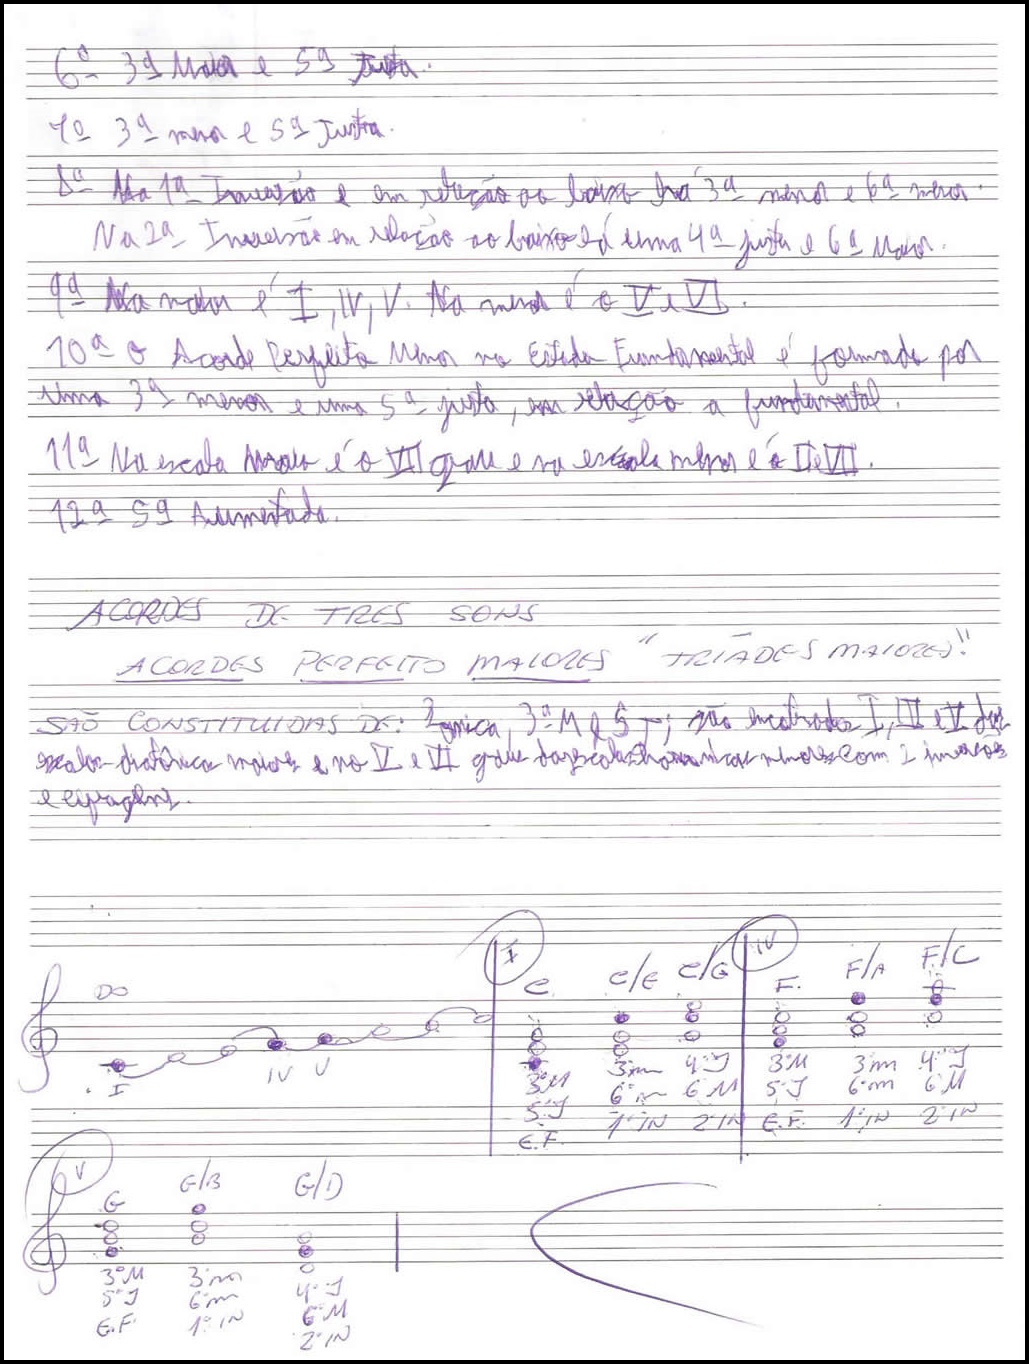 6ª 3ª Maior e 5ª Justa.
7ª 3ª menor e 5ª Justa.
8ª Na 1ª Inversão e em relação ao baixo há 3ª menor e 6ª menor.
Na 2ª Inversão em relação ao baixo é uma 4ª justa e 6ª Maior.
9ª Na maior é I, IV, V. Na menor é o V e VI.
10ª O Acorde Perfeito Menor no Estado Fundamental é formado por
uma 3ª menor e uma 5ª justa, em relação a fundamental.
11ª Na escala Maior é o VII grau e na escala menor é o II e VII.
12ª 5ª Aumentada.
ACORDES DE TRES SONS
ACORDES PERFEITO MAIORES "TRIADES MAIORES!"
SAÕ CONSTITUIDAS DE: 3ª M e 5 J; são I, III e V das
escalas diatônica maiores e no V e VI grau das escalas menores com 2
e
DO I IV C/E C/G F/A F/C
C F.
I IV V
3ªM 3ªm 4ªJ 3ªM 3ªm 4ªJ
5ªJ 6ªm 6M 5ªJ 6ªm 6M
E.F. 1ªIN 2ªIN E.F. 1ªIN 2ªIN
V
G G/B G/D
3ªM 3ªm 4ªJ
5ªJ 6m 6ªM
E.F. 1ªIN 2ªIN